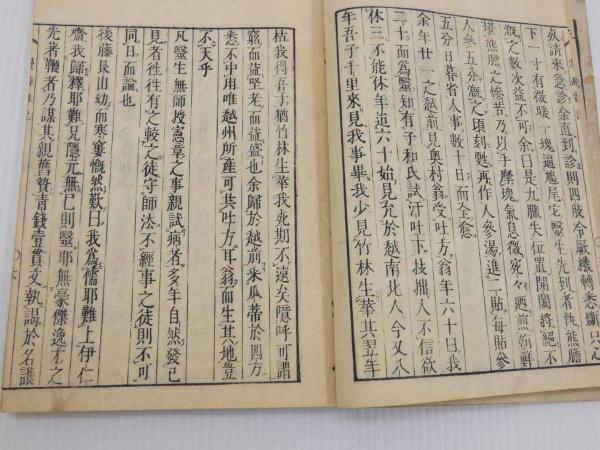 奴請來急診余直到診則四肢令厥機轉悉斷只心
下一寸有微暖一塊逼尾宅醫生先到者執熊膽
漑之數次益不可余曰是九臟失位置開闔將絕不
堪熊膽之慘苦及以手摩塊氣息微
煎朝鮮
人參五分漑之頃刻甦再作人參湯進二貼每貼參
五分日暮省人事數十日而全愈
余年廿一之越前見奧村翁受吐方翁年六十日我
二十而為醫知有子和氏試汗吐下技拙人不信欲
休三不能休年近六十始見允於越南北人今又八
年吾子千里來見我事畢我少見竹林生華其翌年
枯我得吾子猶竹林生華我死期不遠矣隱呼可謂
窮而益堅老而益盛也余歸於越前采瓜蒂於四方
悉不中用唯越州所產可共吐方耳翁而生其地豈
不天乎
凡醫生無師授憲章之事親試病者多年自然發已
見者往往有之較之徒守師法不經事之徒則不可
同日而論也
後藤艮山幼而寒窶慨然歎曰我為儒耶難上伊仁
齋我歸釋耶難見隱元無已則醫耶無豪傑逸才之
先著鞭者乃謀其親舊贄青錢壹貫文執謁於名護